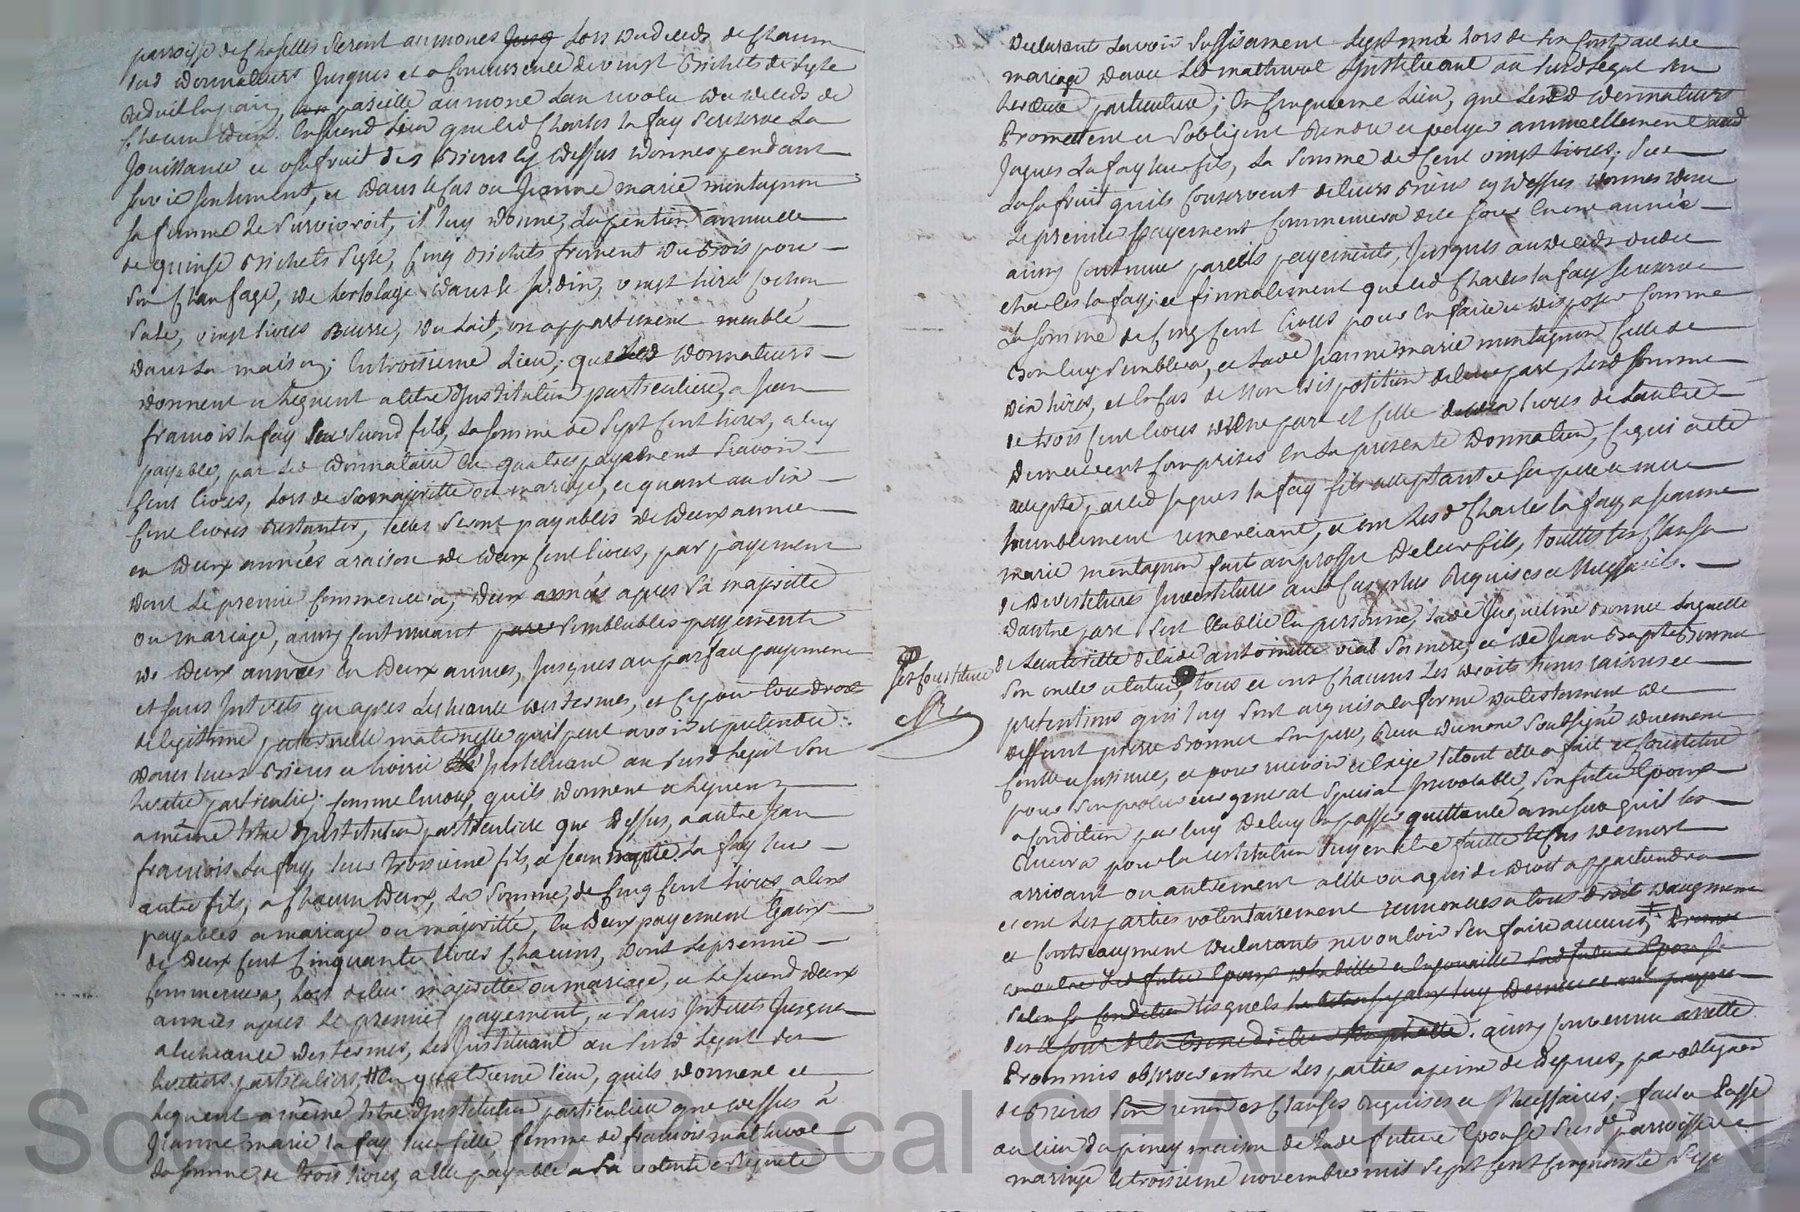 parroisse de Chasselles seront aumones Lors du deceds de Chacun
desd donnateurs Jusques et a concurrence de vingt Bichets de Seigle
reduit en pain, pareille aumone L'an revolu du deceds de
Chacun deux. En second Lieu que led Charles la fay se reserve La
Jouissance et usufruit des Biens cy dessus donnes pendant
sa vie seulement, et dans le cas ou Jeanne marie montagnon
sa femme le survivroit, il luy donne, La pention annuelle
de quinse Bichets seigle, Cinq Bichets froment du Bois pour
son Chaufage, de hertolage dans le Jardin, vingt livre Cochon
salé, vingt livres Beurre, du Lait, un appartement meublé
dans La maison; En troisieme Lieu, que Lesd donnateurs
donnent et Leguent a titre d'Institution particuliere, a Jean
francois la fay leur second fils, La somme de Sept Cent livres, a luy
payable, par led donnataire En quatre payement Scavoir
Cent livres, Lors de sa majoritté ou mariage, et quant au six
Cent livres restantes, elles seront payables de deux années
en deux années a raison de deux Cent livres, par payement
dont Le premier Commencera, deux années apres sa majoritté
ou mariage, ainsy Continuant semblables payements
de deux années en deux années, Jusques au parfait payement
et sans Interets qu'apres L'echeance des termes, et Ce pour tous droits
de legitime, paternelle maternelle quil peut avoir et pretendre
dans leurs Biens et hoirie L'Instituant au susd Legat son
heritier particulier; Comme Encore, quils donnent et Leguent
a même titre d'Institution particuliere que dessus, a autre Jean
francois La fay, leur troisieme fils, et Jean La fay leur
autre fils, a Chacun deux, La somme, de Cinq Cent livres, a Eux
payables a mariage ou majoritté, En deux payement Egaux
de deux Cent Cinquante livres Chacuns, dont Le premier
Commencera, Lors de leur majoritté ou mariage, et Le second deux
années apres Le premier payement, et sans Interets Jusques
a L'echeance des termes, Les Instituant au susd Legat des
heritiers particuliers, En quatrieme lieu, quils donnent et
Leguent a même titre d'Institution particuliere que dessus à
Jeanne marie la fay leur fille femme de francois mathuroe
La somme, de trois livres, a Elle payable a sa volonté et requete
declarant L'avoir suffisament Legitimée lors de son Contrat de
mariage d'avec Led mathuroe L'Instituant au susd Legat son
heritiere particuliere; En Cinquieme Lieu, que Lesd donnateurs
Promettent et s'obligent Rendre et payer annuellement aud
Jaques La fay leur fils, La somme de Cent vingt livres; sur
L'usufruit quils Conservent de leurs Biens cy dessus donnes dont
Le premier payement Commencera de ce jour En une année
ainsy Continuer pareils payements, Jusques au deceds dud
charles la fay; et finnalement que led Charles la fay se reserve
La somme de Cinq Cent livres pour En faire et disposer Comme
Bon luy semblera, et Lade Jeanne marie montagnon Celle de
dix livres, et En Cas de Non disposition de leur part, Lesd sommes
de Cinq Cent livres d'une part et Celle de dix livres de L'autre
demeureront Comprises En La presente donnation, Ce qui a eté
accepté, par led Jaques la fay fils acceptant et ses pere et mere
humblement remerciant, et ont Lesd Charles la fay et Jeanne
marie montagnon fait au proffit de leur fils, touttes les Clauses
de devestitures Investitures au Cas plus requises et Necessaires.
d'autre part s'est Etablie En personne, Lade Jaqueline Bonnue Laquelle
se Constitue
de L'autoritté de lade antoinette vial Sa mere, et de Jean Baptiste Bonnue
son oncle et tuteur, tous et uns Chacuns Les droits noms raisons et
pretentions qui luy sont acquis a la forme du testament de
deffunt pierre Bonnue son pere, Receu du none soussigné duement
Controllé et Insinué, et pour recevoir et Exiger le tout elle a fait et Constitué
pour son procureur general special Irrevocable, son futur Epoux
a Condition par luy de luy En passer quittance a mesure quil les
recevra pour la restitution luy en etre faitte le Cas de mort
arrivant ou autrement a Elle ou a qui de droit appartiendra
et ont Les parties volontairement renoncés a tous droits d'augment
et Contreaugment declarants ne vouloir s'en faire aucuns,
ainsy Convenu arretté
Prommis observer entre Les parties a peine de depens, par obligation
de Biens sous renon et Clauses requises et Necessaires. fait et Passé
au lieu dupiney maison de Lade future Epouse susde parroisse de
maringe le troisieme novembre mil sept Cent Cinquante Sept
Source AD Pascal CHAREYRON